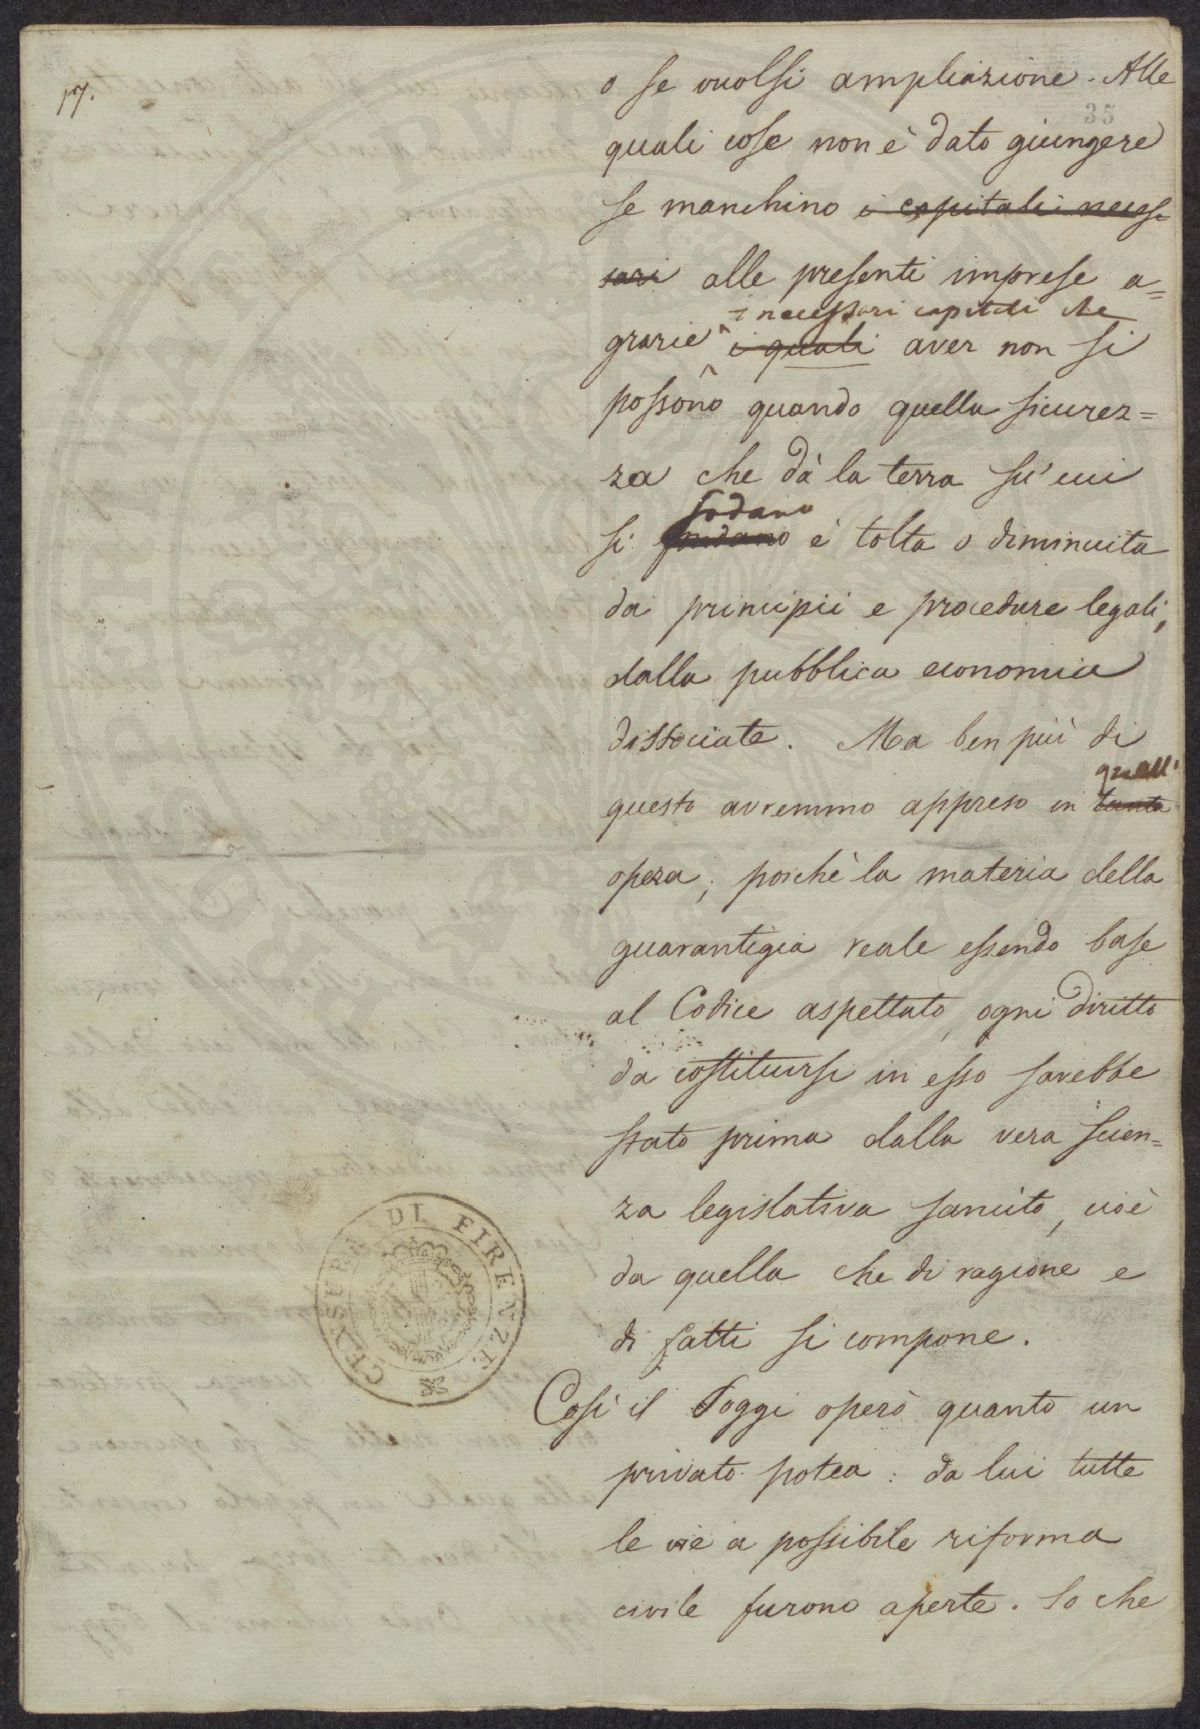 17.
35
o se vuolsi ampliazione. Alle
quali cose non è dato giungere
se manchino i capitali neces
sari alle presenti imprese a=
i necessari capitali che
grarie i quali aver non si
possono quando quella sicurez=
za che dà la terra su' cui
sodano
si fondano è tolta o diminuita
da principii e procedure legali,
dalla pubblica economia
dissociate. Ma ben più di
quell'
questo avremmo appreso in tanta
opera; poichè la materia della
guarantigia reale essendo base
al Codice aspettato, ogni diritto
da costituirsi in esso sarebbe
stato prima dalla vera scien=
za legislativa sancito, cioè
da quella che di ragione e
di fatti si compone.
Così il Poggi operò quanto un
privato potea: da lui tutte
le vie a possibile riforma
civile furono aperte. So che
CENSURA DI FIRENZE